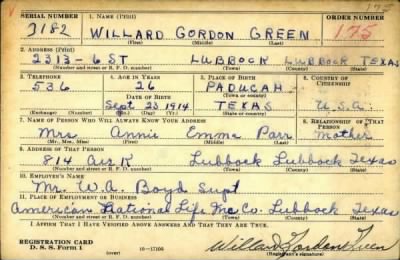 175
SERIAL NUMBER 1. NAME (Print) ORDER NUMBER
3182 WILLARD GORDON GREEN 175
(First) (Middle) (Last)
2. ADDRESS (Print)
2313-6 ST LUBBOCK LUBBOCK TEXAS
(Number and street or R. F. D. number) (Town) (County) (State)
3. TELEPHONE 4. AGE IN YEARS 5. PLACE OF BIRTH 6. COUNTRY OF CITIZENSHIP
536 26 PADUCAH
DATE OF BIRTH (Town or county)
Sept 23 1914 TEXAS U.S.A.
(Exchange) (Number) (Mo.) (Day) (Yr.) (State or country)
7. NAME OF PERSON WHO WILL ALWAYS KNOW YOUR ADDRESS 8. RELATIONSHIP OF THAT PERSON
Mrs Annie Emma Parr Mother
(Mr., Mrs., Miss) (First) (Middle) (Last)
9. ADDRESS OF THAT PERSON
814 Ave K Lubbock Lubbock Texas
(Number and street or R. F. D. number) (Town) (County) (State)
10. EMPLOYER'S NAME
Mr. W.A. Boyd Supt
11. PLACE OF EMPLOYMENT OR BUSINESS
American National Life Ins Co. Lubbock Texas
(Number and street or R. F. D. number) (Town) (County) (State)
I AFFIRM THAT I HAVE VERIFIED ABOVE ANSWERS AND THAT THEY ARE TRUE.
REGISTRATION CARD
D. S. S. Form 1 (over) 16-17105 Willard Gordon Green
(Registrant's signature)